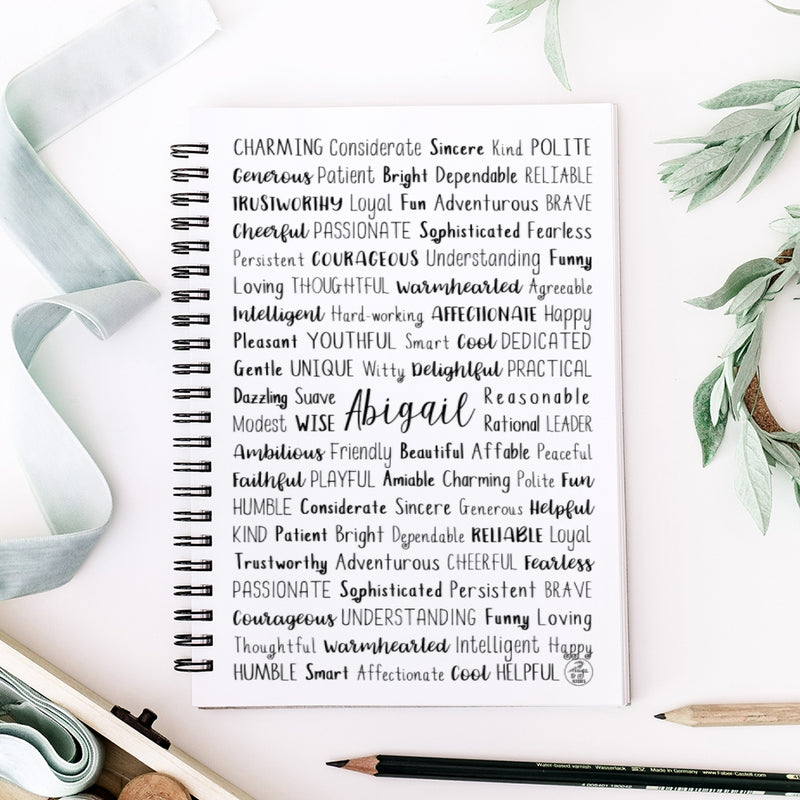 CHARMING Considerate Sincere Kind POLITE
Generous Patient Bright Dependable RELIABLE
TRUSTWORTHY Loyal Fun Adventurous BRAVE
Cheerful PASSIONATE Sophisticated Fearless
Persistent COURAGEOUS Understanding Funny
Loving THOUGHTFUL Warmhearted Agreeable
Intelligent Hard-working AFFECTIONATE Happy
Pleasant YOUTHFUL Smart Cool DEDICATED
Gentle UNIQUE Witty Delightful PRACTICAL
Dazzling Suave Reasonable
Abigail
Modest WISE Rational LEADER
Ambitious Friendly Beautiful Affable Peaceful
Faithful PLAYFUL Amiable Charming Polite Fun
HUMBLE Considerate Sincere Generous Helpful
KIND Patient Bright Dependable RELIABLE Loyal
Trustworthy Adventurous CHEERFUL Fearless
PASSIONATE Sophisticated Persistent BRAVE
Courageous UNDERSTANDING Funny Loving
Thoughtful Warmhearted Intelligent Happy
HUMBLE Smart Affectionate Cool HELPFUL
Water-based varnish Wasserlack Made in Germany www.Faber-Castell.com